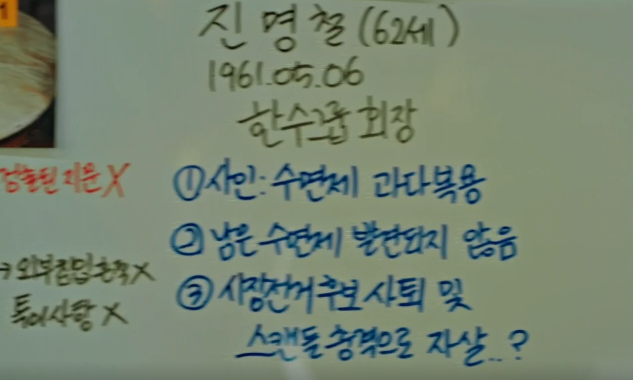 1
진명철(62세)
1961.05.06
한수그룹 회장
검출된 지문 X
① 사인: 수면제 과다복용
② 남은 수면제 발견되지 않음
→ 외부침입흔적 X
③ 시장선거후보 사퇴 및
특이사항 X
스캔들 충격으로 자살..?